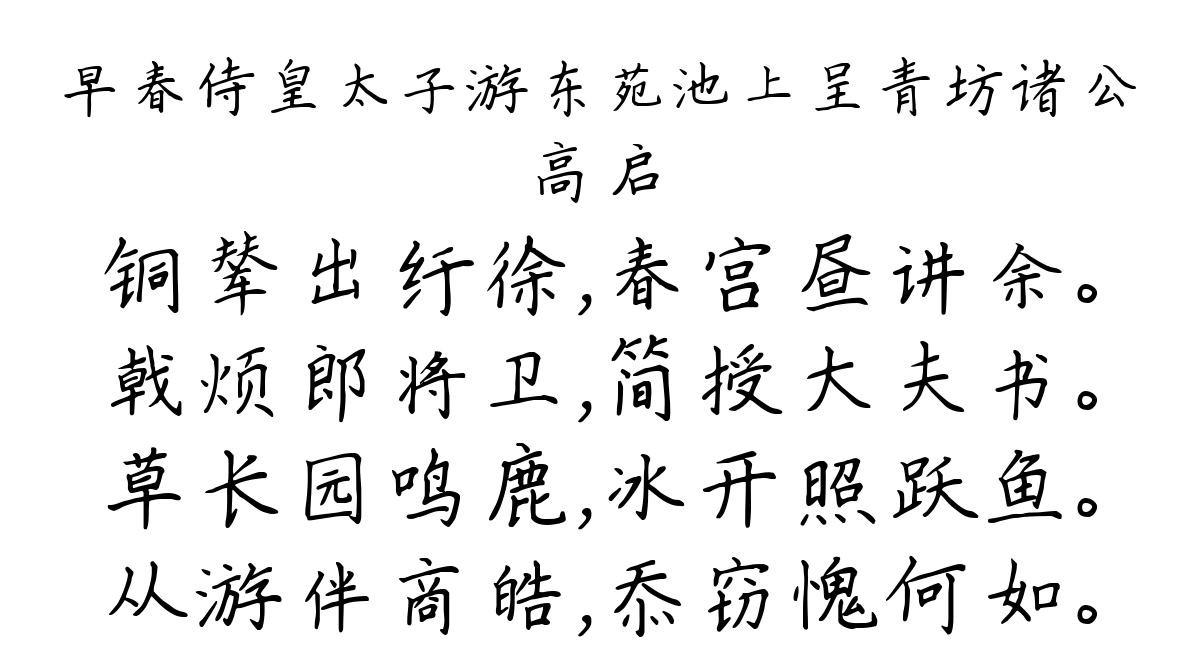 早春侍皇太子游东苑池上呈青坊诸公
高启
铜辇出纡徐,春宫昼讲余。
戟烦郎将卫,简授大夫书。
草长园鸣鹿,冰开照跃鱼。
从游伴商皓,忝窃愧何如。